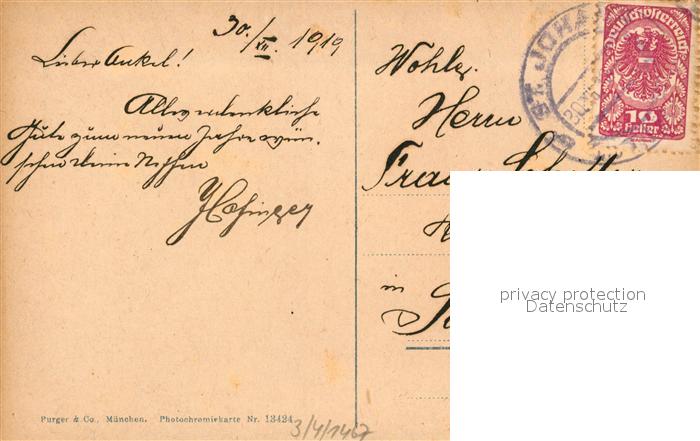 30./XII. 1919
Lieber Onkel!
Alles erdenkliche
Gute zum neuen Jahre wün-
schen deine Neffen
Wohlg.
Herrn
Franz
in
ST. JOHA
Deutschösterreich
10
Heller
privacy protection
Datenschutz
Purger & Co., München. Photochromiekarte Nr. 13424
3/4/1467